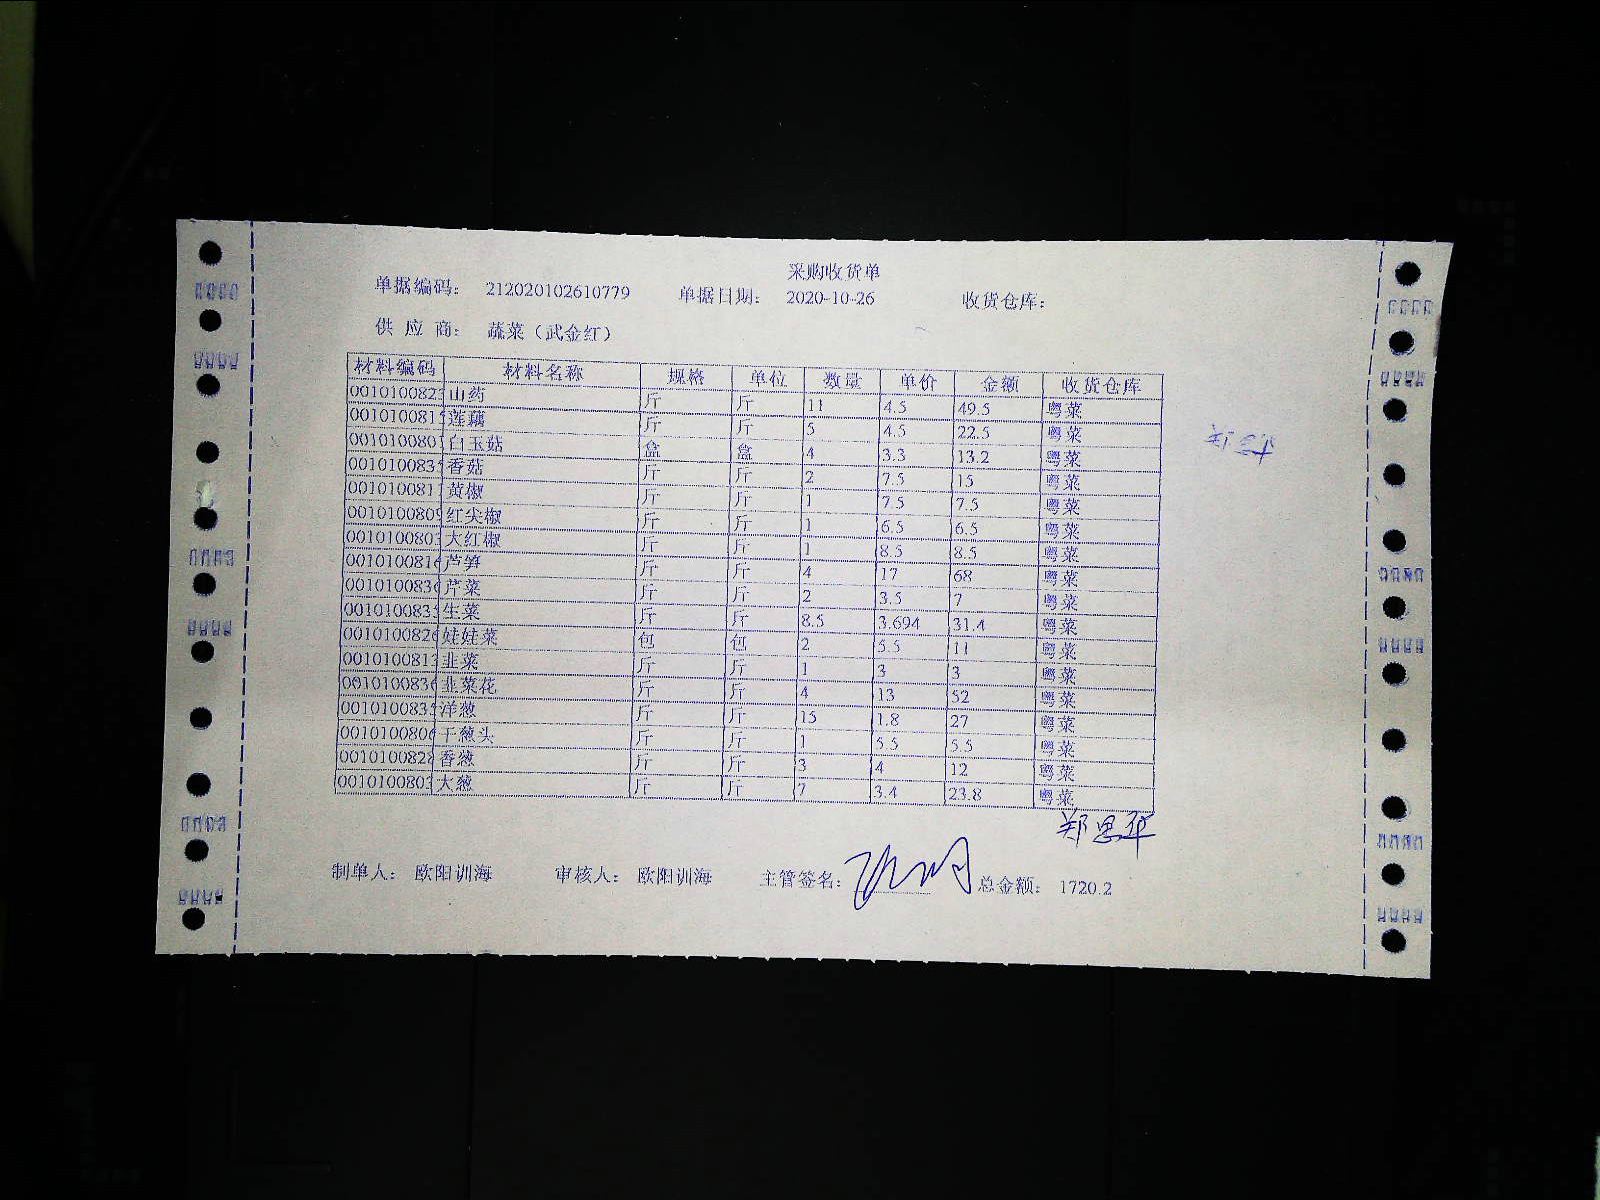 采购收货单
单据编码: 212020102610779 单据日期: 2020-10-26 收货仓库:
供 应 商: 蔬菜（武金红）
材料编码 材料名称 规格 单位 数量 单价 金额 收货仓库
001010082 山药 斤 斤 11 4.5 49.5 粤菜
001010081 莲藕 斤 斤 5 4.5 22.5 粤菜
001010080 白玉菇 盒 盒 4 3.3 13.2 粤菜
001010083 香菇 斤 斤 2 7.5 15 粤菜
001010081 黄椒 斤 斤 1 7.5 7.5 粤菜
001010080 红尖椒 斤 斤 1 6.5 6.5 粤菜
001010080 大红椒 斤 斤 1 8.5 8.5 粤菜
001010081 芦笋 斤 斤 4 17 68 粤菜
001010083 芹菜 斤 斤 2 3.5 7 粤菜
001010083 生菜 斤 斤 8.5 3.694 31.4 粤菜
001010082 娃娃菜 包 包 2 5.5 11 粤菜
001010081 韭菜 斤 斤 1 3 3 粤菜
001010083 韭菜花 斤 斤 4 13 52 粤菜
001010083 洋葱 斤 斤 15 1.8 27 粤菜
001010080 干葱头 斤 斤 1 5.5 5.5 粤菜
001010082 香葱 斤 斤 3 4 12 粤菜
001010080 大葱 斤 斤 7 3.4 23.8 粤菜
郑思华
制单人: 欧阳训海 审核人: 欧阳训海 主管签名: 总金额: 1720.2